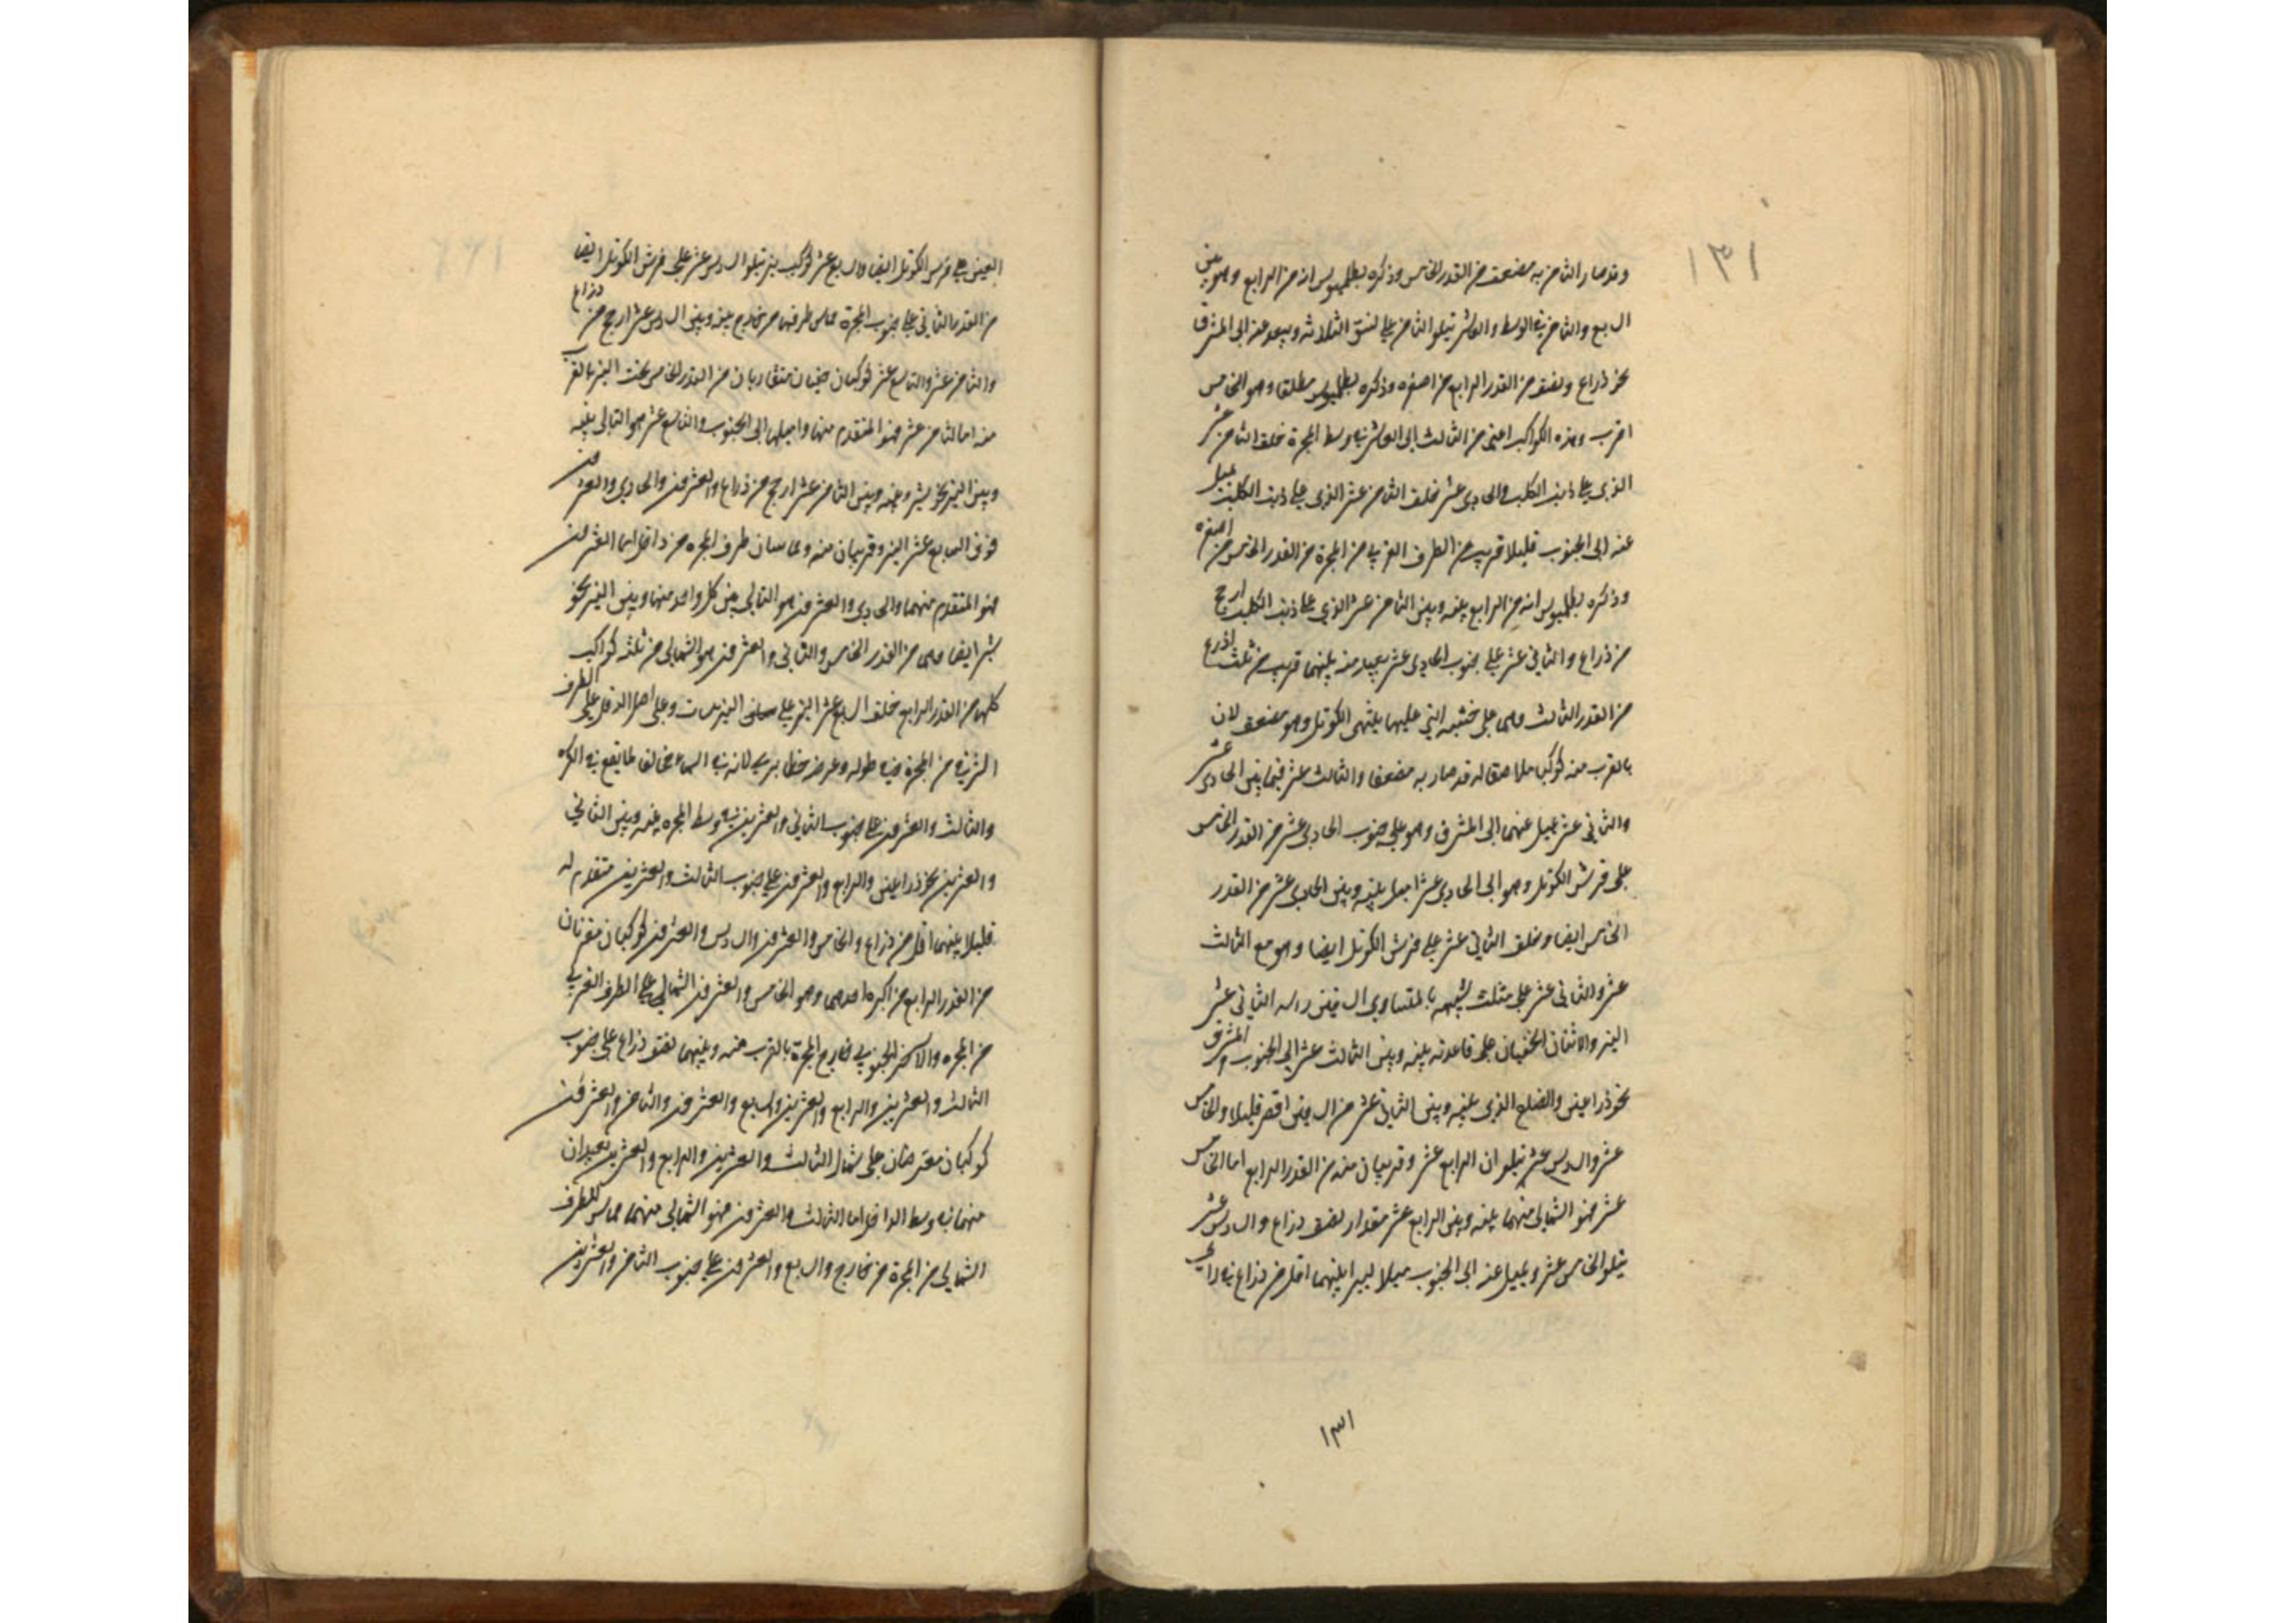 ١٣١
وقد صار الثامن به مضعف من القدر الخامس وذكره بطلميوس انه من الرابع وهو بين
السابع والثامن في الوسط والعاشر يتلو الثامن على نسق الثلاثة ويبعد عنه الى المشرق
نحو ذراع ونصف من القدر الرابع من اصغره وذكره بطلميوس مطلقا وهو الى الخامس
اقرب وهذه الكواكب اعنى من الثالث الى العاشر في وسط المجرة خلف الثامن عشر
الذى على ذنب الكلب والحادى عشر خلف الثامن عشر الذى على ذنب الكلب يميل
عنه الى الجنوب قليلا قريب من الطرف الغربي من المجرة من القدر الخامس من اصغره
وذكره بطلميوس انه من الرابع بينه وبين الثامن عشر الذى على ذنب الكلب ارجح
من ذراع والثاني عشر على جنوب الحادى عشر بعيد منه بينهما قريب من ثلث اذرع
من القدر الثالث وهى على خشبه التي عليها ينتهى الكوثل وهو مضعف لان
بالقرب منه كوكبا ملاصقا له قد صار به مضعفا والثالث عشر فيما بين الحادى عشر
والثاني عشر يميل عنهما الى المشرق وهو على جنوب الحادى عشر من القدر الخامس
على فرش الكوثل وهو الى الحادى عشر اميل بينه وبين الحادى عشر من القدر
الخامس ايضا وخلف الثاني عشر على فرش الكوثل ايضا وهو مع الثالث
عشر والثاني عشر على مثلث شبيه بالمتساوى الساقين راسه الثاني عشر
النير والاثنان الخفيان على قاعدته بينه وبين الثالث عشر الى الجنوب والمشرق
نحو ذراعين والضلع الذى بينه وبين الثاني عشر من الساقين اقصر قليلا والخامس
عشر والسادس عشر يتلوان الرابع عشر وقريبان منه من القدر الرابع اما الخامس
عشر فهو الشمالى منهما بينه وبين الرابع عشر مقدار نصف ذراع والسادس عشر
يتلو الخامس عشر ويميل عنه الى الجنوب ميلا يسيرا بينهما اقل من ذراع في راى
١٣١
العين على فرش الكوثل ايضا والسابع عشر كوكب نير يتلو السادس عشر على فرش الكوثل ايضا
من القدر الثاني على جنوب المجرة مماس طرفها من خارج بينه وبين السادس عشر ارجح من ذراع
والثامن عشر والتاسع عشر كوكبان خفيان متقاربان من القدر الخامس تحت النير بالقرب
منه اما الثامن عشر فهو المتقدم منهما واميلهما الى الجنوب والتاسع عشر هو التالى بينه
وبين النير نحو شبر وبينه وبين الثامن عشر ارجح من ذراع والعشرون والحادى والعشرون
فوق السابع عشر النير وقريبان منه ومماسان طرف المجره من داخل اما العشرون
فهو المتقدم منهما والحادى والعشرون هو التالى بين كل واحد منهما وبين النير نحو
شبر ايضا وهما من القدر الخامس والثاني والعشرون هو الشمالى من ثلثة كواكب
كلها من القدر الرابع خلف السابع عشر النير على وعلى اصل الدقل على الطرف
من المجرة وفي طوله وعرضه خطا لانه يرى في السماء مخالفا لما يقع في الكره
والثالث والعشرون على جنوب الثاني والعشرين في وسط المجره بينه وبين الثاني
والعشرين نحو ذراعين والرابع والعشرون على جنوب الثالث والعشرين متقدم له
قليلا بينهما اقل من ذراع والخامس والعشرون والسادس والعشرون كوكبان مقترنان
من القدر الرابع من اكبره احدهما وهو الخامس والعشرون الشمالى على الطرف الغربي
من المجره والاخر الجنوبي خارج المجرة بالقرب منه وبينهما نصف ذراع على جنوب
الثالث والعشرين والرابع والعشرين والسابع والعشرون والثامن والعشرون
كوكبان معترضان على شمال الثالث والعشرين والرابع والعشرين بعيدان
منهما في وسط اما الثالث والعشرون فهو الشمالى منهما مماس للطرف
الشمالى من المجرة من خارج والسابع والعشرون على جنوب الثامن والعشرين